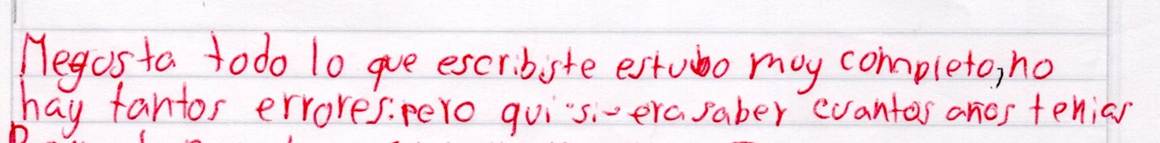 Megusta todo lo que escribiste estubo muy completo, no
hay tantos errores: pero quisi-era saber cuantos anos tenias